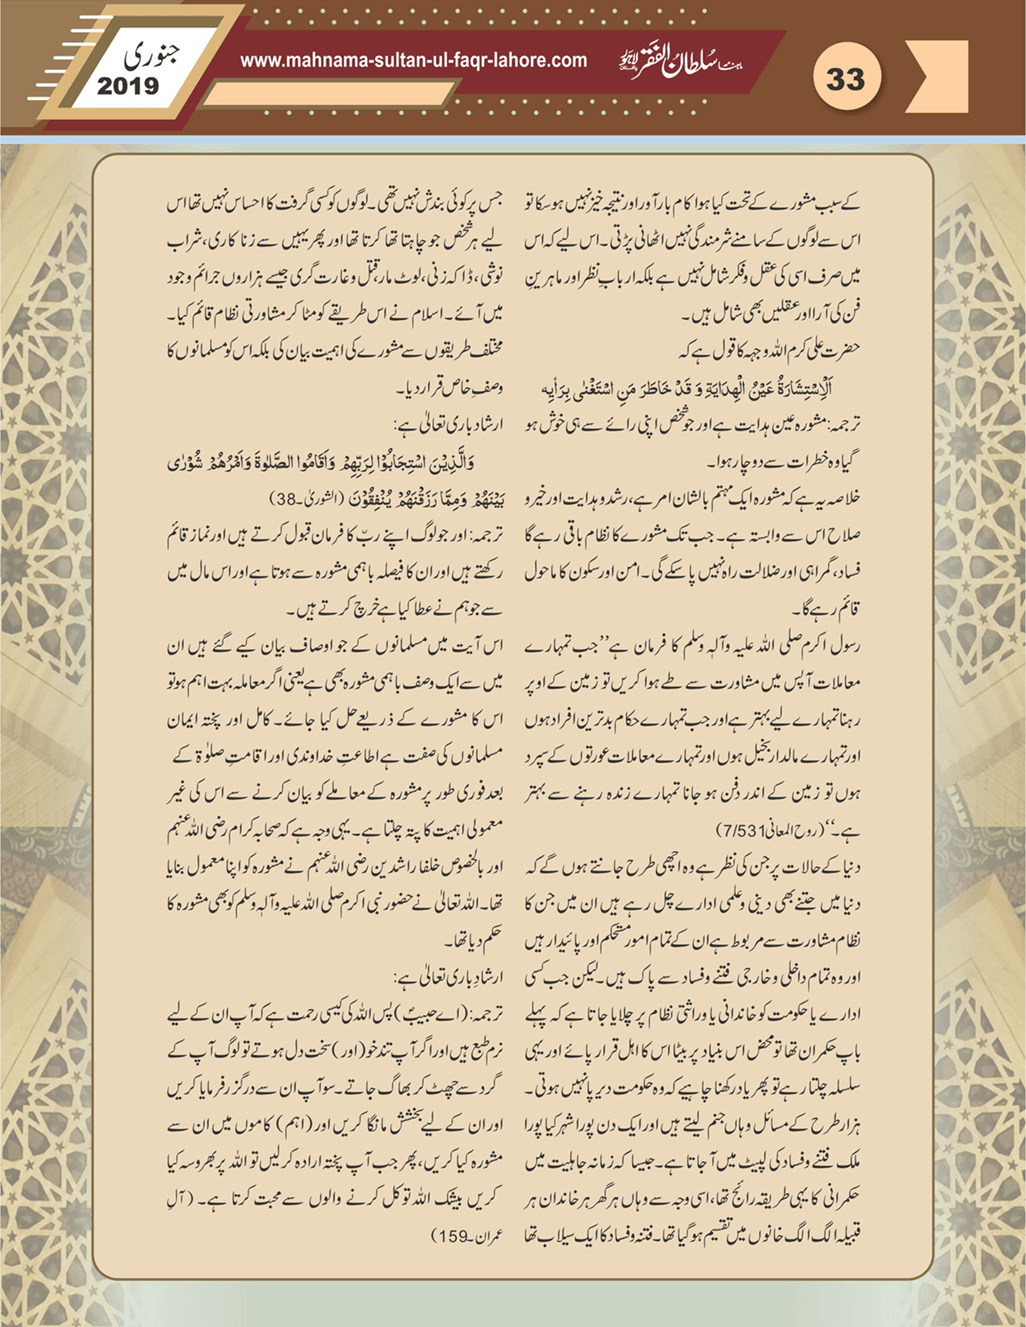 جنوری
2019
www.mahnama-sultan-ul-faqr-lahore.com
ماہنامہ سلطان الفقر لاہور
33
کے سبب مشورے کے تحت کیا ہوا کام بارآور اور نتیجہ خیز نہیں ہو سکا تو
اس سے لوگوں کے سامنے شرمندگی نہیں اٹھانی پڑتی۔ اس لیے کہ اس
میں صرف اسی کی عقل و فکر شامل نہیں ہے بلکہ اربابِ نظر اور ماہرینِ
فن کی آرا اور عقلیں بھی شامل ہیں۔
حضرت علی کرم اللہ وجہہ کا قول ہے کہ
اَلْاِسْتِشَارَۃُ عَیْنُ الْھِدَایَۃِ وَ قَدْ خَاطَرَ مَنِ اسْتَغْنٰی بِرَاْیِہٖ
ترجمہ: مشورہ عین ہدایت ہے اور جو شخص اپنی رائے سے ہی خوش ہو
گیا وہ خطرات سے دوچار ہوا۔
خلاصہ یہ ہے کہ مشورہ ایک مہتم بالشان امر ہے، رشد و ہدایت اور خیر و
صلاح اس سے وابستہ ہے۔ جب تک مشورے کا نظام باقی رہے گا
فساد، گمراہی اور ضلالت راہ نہیں پا سکے گی۔ امن اور سکون کا ماحول
قائم رہے گا۔
رسول اکرم صلی اللہ علیہ وآلہٖ وسلم کا فرمان ہے ’’جب تمہارے
معاملات آپس میں مشاورت سے طے ہوا کریں تو زمین کے اوپر
رہنا تمہارے لیے بہتر ہے اور جب تمہارے حکام بدترین افراد ہوں
اور تمہارے مالدار بخیل ہوں اور تمہارے معاملات عورتوں کے سپرد
ہوں تو زمین کے اندر دفن ہو جانا تمہارے زندہ رہنے سے بہتر
ہے۔‘‘ (روح المعانی 7/531)
دنیا کے حالات پر جن کی نظر ہے وہ اچھی طرح جانتے ہوں گے کہ
دنیا میں جتنے بھی دینی و علمی ادارے چل رہے ہیں ان میں جن کا
نظام مشاورت سے مربوط ہے ان کے تمام امور مستحکم اور پائیدار ہیں
اور وہ تمام داخلی و خارجی فتنے و فساد سے پاک ہیں۔ لیکن جب کسی
ادارے یا حکومت کو خاندانی یا وراثتی نظام پر چلایا جاتا ہے کہ پہلے
باپ حکمران تھا تو محض اس بنیاد پر بیٹا اس کا اہل قرار پائے اور یہی
سلسلہ چلتا رہے تو پھر یاد رکھنا چاہیے کہ وہ حکومت دیرپا نہیں ہوتی۔
ہزار طرح کے مسائل وہاں جنم لیتے ہیں اور ایک دن پورا شہر کیا پورا
ملک فتنے و فساد کی لپیٹ میں آ جاتا ہے۔ جیسا کہ زمانہ جاہلیت میں
حکمرانی کا یہی طریقہ رائج تھا، اسی وجہ سے وہاں ہر گھر ہر خاندان ہر
قبیلہ الگ الگ خانوں میں تقسیم ہو گیا تھا۔ فتنہ و فساد کا ایک سیلاب تھا
جس پر کوئی بندش نہیں تھی۔ لوگوں کو کسی گرفت کا احساس نہیں تھا اس
لیے ہر شخص جو چاہتا تھا کرتا تھا اور پھر یہیں سے زناکاری، شراب
نوشی، ڈاکہ زنی، لوٹ مار، قتل و غارت گری جیسے ہزاروں جرائم وجود
میں آئے۔ اسلام نے اس طریقے کو مٹا کر مشاورتی نظام قائم کیا۔
مختلف طریقوں سے مشورے کی اہمیت بیان کی بلکہ اس کو مسلمانوں کا
وصفِ خاص قرار دیا۔
ارشاد باری تعالیٰ ہے:
وَالَّذِیْنَ اسْتَجَابُوْا لِرَبِّھِمْ وَاَقَامُوا الصَّلٰوۃَ وَاَمْرُھُمْ شُوْرٰی
بَیْنَھُمْ وَمِمَّا رَزَقْنٰھُمْ یُنْفِقُوْنَ (الشوریٰ۔38)
ترجمہ: اور جو لوگ اپنے ربّ کا فرمان قبول کرتے ہیں اور نماز قائم
رکھتے ہیں اور ان کا فیصلہ باہمی مشورہ سے ہوتا ہے اور اس مال میں
سے جو ہم نے عطا کیا ہے خرچ کرتے ہیں۔
اس آیت میں مسلمانوں کے جو اوصاف بیان کیے گئے ہیں ان
میں سے ایک وصف باہمی مشورہ بھی ہے یعنی اگر معاملہ بہت اہم ہو تو
اس کا مشورے کے ذریعے حل کیا جائے۔ کامل اور پختہ ایمان
مسلمانوں کی صفت ہے اطاعتِ خداوندی اور اقامتِ صلوٰۃ کے
بعد فوری طور پر مشورہ کے معاملے کو بیان کرنے سے اس کی غیر
معمولی اہمیت کا پتہ چلتا ہے۔ یہی وجہ ہے کہ صحابہ کرام رضی اللہ عنہم
اور بالخصوص خلفا راشدین رضی اللہ عنہم نے مشورہ کو اپنا معمول بنایا
تھا۔ اللہ تعالیٰ نے حضور نبی اکرم صلی اللہ علیہ وآلہٖ وسلم کو بھی مشورہ کا
حکم دیا تھا۔
ارشادِ باری تعالیٰ ہے:
ترجمہ: (اے حبیبؐ) پس اللہ کی کیسی رحمت ہے کہ آپ ان کے لیے
نرم طبع ہیں اور اگر آپ تند خو (اور) سخت دل ہوتے تو لوگ آپ کے
گرد سے چھٹ کر بھاگ جاتے۔ سو آپ ان سے درگزر فرمایا کریں
اور ان کے لیے بخشش مانگا کریں اور (اہم) کاموں میں ان سے
مشورہ کیا کریں، پھر جب آپ پختہ ارادہ کر لیں تو اللہ پر بھروسہ کیا
کریں بیشک اللہ توکل کرنے والوں سے محبت کرتا ہے۔ (آلِ
عمران۔159)